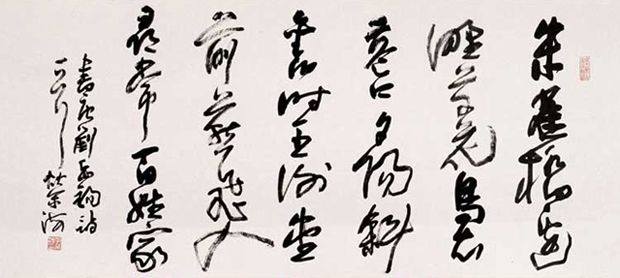 朱雀橋邊
野草花烏衣
巷口夕陽斜
舊時王謝堂
前燕飛入
尋常百姓家
書唐劉禹錫詩